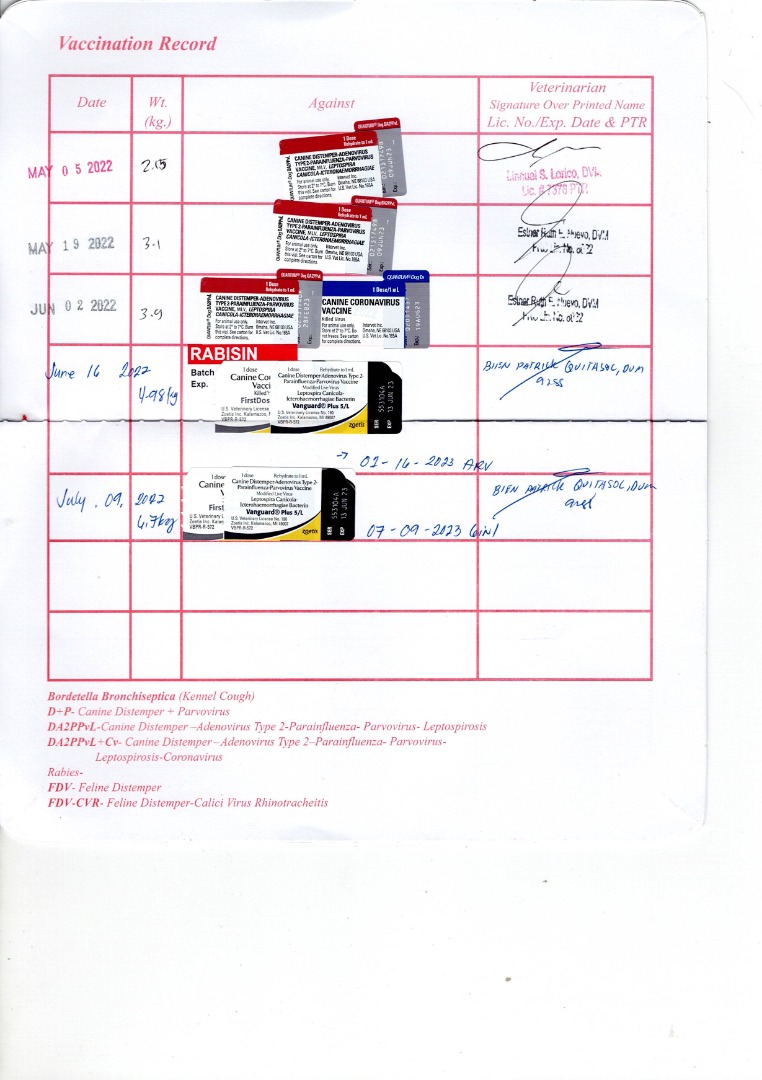 Vaccination Record
Date
Wt.
(kg.)
Against
Veterinarian
Signature Over Printed Name
Lic. No./Exp. Date & PTR
MAY 05 2022
QUANTUM® Dog DA2PPvL
1 Dose
Rehydrate to 1 mL
CANINE DISTEMPER-ADENOVIRUS
TYPE 2-PARAINFLUENZA-PARVOVIRUS
VACCINE, M.L.V., LEPTOSPIRA
CANICOLA-ICTEROHAEMORRHAGIAE
For animal use only. Intervet Inc.
Store at 2° to 7°C. Burn Omaha, NE 68103 USA
this vial. See carton for U.S. Vet Lic. No.165A
complete directions.
Linnuel S. Lorico, DVM
MAY 19 2022
3.1
QUANTUM® Dog DA2PPvL
1 Dose
Rehydrate to 1 mL
CANINE DISTEMPER-ADENOVIRUS
TYPE 2-PARAINFLUENZA-PARVOVIRUS
VACCINE, M.L.V., LEPTOSPIRA
CANICOLA-ICTEROHAEMORRHAGIAE
For animal use only. Intervet Inc.
Store at 2° to 7°C. Burn Omaha, NE 68103 USA
this vial. See carton for U.S. Vet Lic. No.165A
complete directions.
DVM
JUN 02 2022
3.9
QUANTUM® Dog DA2PPvL
1 Dose
Rehydrate to 1 mL
CANINE DISTEMPER-ADENOVIRUS
TYPE 2-PARAINFLUENZA-PARVOVIRUS
VACCINE, M.L.V., LEPTOSPIRA
CANICOLA-ICTEROHAEMORRHAGIAE
For animal use only. Intervet Inc.
Store at 2° to 7°C. Burn Omaha, NE 68103 USA
this vial. See carton for U.S. Vet Lic. No.165A
complete directions.
QUANTUM® Dog Cv
1 Dose/1 mL
CANINE CORONAVIRUS
VACCINE
Killed Virus
For animal use only. Intervet Inc.
Store at 2° to 7°C. Do Omaha, NE 68103 USA
not freeze. See carton U.S. Vet Lic. No.165A
for complete directions.
19AUG23
DVM
June 16 2022
4.98kg
RABISIN
Batch
Exp.
1 dose
Canine Co
Vacci
Killed
FirstDos
U.S. Veterinary License
Zoetis Inc. Kalamazoo,
VBPR-R-572
1 dose Rehydrate to 1 mL
Canine Distemper-Adenovirus Type 2-
Parainfluenza-Parvovirus Vaccine
Modified Live Virus
Leptospira Canicola-
Icterohaemorrhagiae Bacterin
Vanguard® Plus 5/L
U.S. Veterinary License No. 190
Zoetis Inc. Kalamazoo, MI 49007
VBPR-R-572
zoetis
SER 553104A
EXP 13 JUN 23
BIEN PATRICK QUITASOL, DVM
9255
→ 02-16-2023 ARV
July . 09, 2022
6.7kg
1 dose
Canine
First
U.S. Veterinary L
Zoetis Inc.
VBPR-R-572
1 dose Rehydrate to 1 mL
Canine Distemper-Adenovirus Type 2-
Parainfluenza-Parvovirus Vaccine
Modified Live Virus
Leptospira Canicola-
Icterohaemorrhagiae Bacterin
Vanguard® Plus 5/L
U.S. Veterinary License No. 190
Zoetis Inc. Kalamazoo, MI 49007
VBPR-R-572
zoetis
SER 553104A
EXP 13 JUN 23
07-09-2023 6in1
BIEN PATRICK QUITASOL, DVM
Bordetella Bronchiseptica (Kennel Cough)
D+P- Canine Distemper + Parvovirus
DA2PPvL-Canine Distemper –Adenovirus Type 2-Parainfluenza- Parvovirus- Leptospirosis
DA2PPvL+Cv- Canine Distemper –Adenovirus Type 2–Parainfluenza- Parvovirus-
Leptospirosis-Coronavirus
Rabies-
FDV- Feline Distemper
FDV-CVR- Feline Distemper-Calici Virus Rhinotracheitis